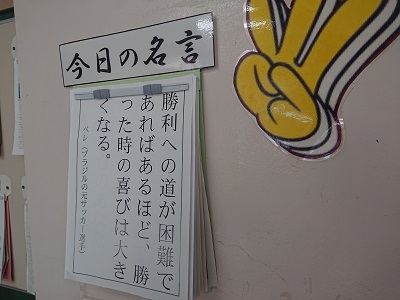 今日の名言
勝利への道が困難で
あればあるほど、勝
った時の喜びは大き
くなる。
ペレ(ブラジルの元サッカー選手)